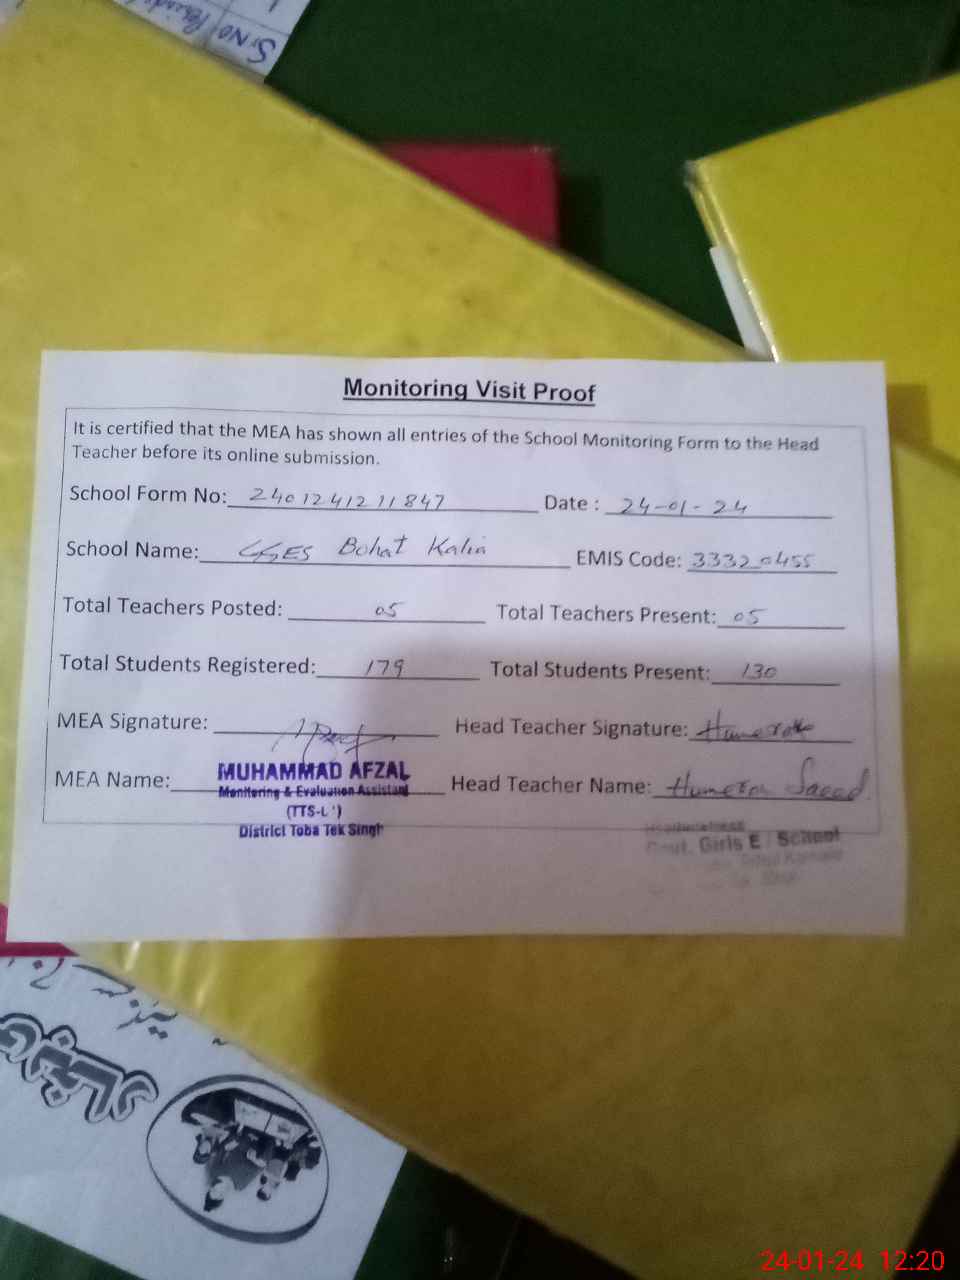 Sr No
Monitoring Visit Proof
It is certified that the MEA has shown all entries of the School Monitoring Form to the Head
Teacher before its online submission.
School Form No: 2401241211847 Date : 24-01-24
School Name: GGES Bohat Kalia EMIS Code: 33320455
Total Teachers Posted: 05 Total Teachers Present: 05
Total Students Registered: 179 Total Students Present: 130
MEA Signature: Head Teacher Signature:
MEA Name: MUHAMMAD AFZAL Head Teacher Name: Humera Saeed
Monitoring & Evaluation Assistant
District Toba Tek Singh
Govt. Girls E School
24-01-24 12:20